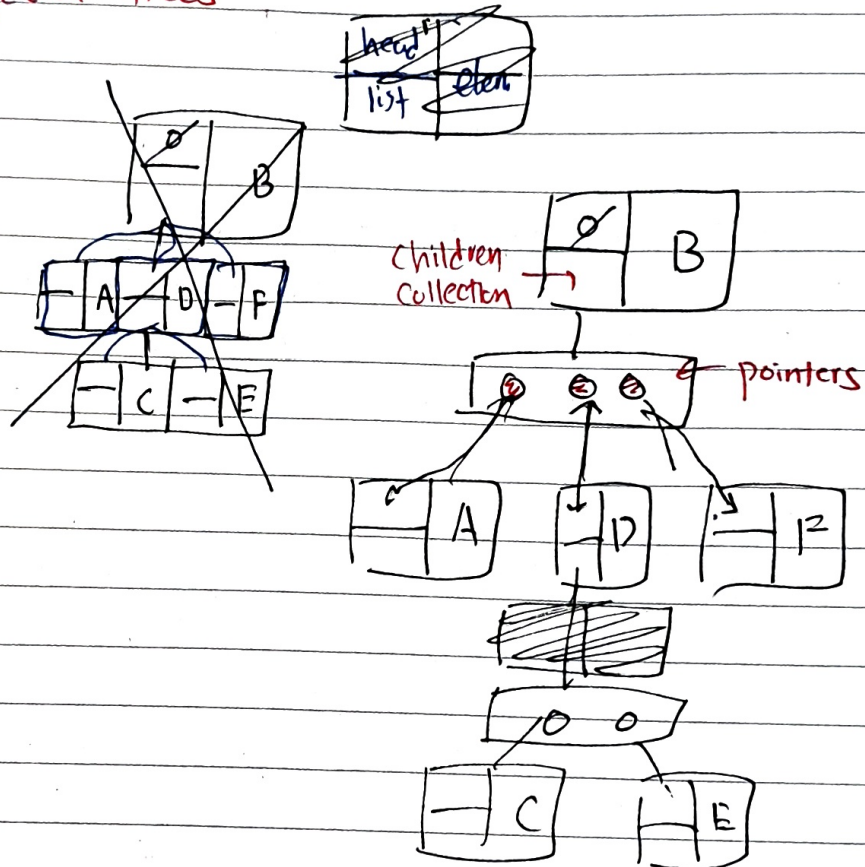 head
list elem
∅ B
A D F
C E
∅ B
Children
Collection
pointers
A D F
C E